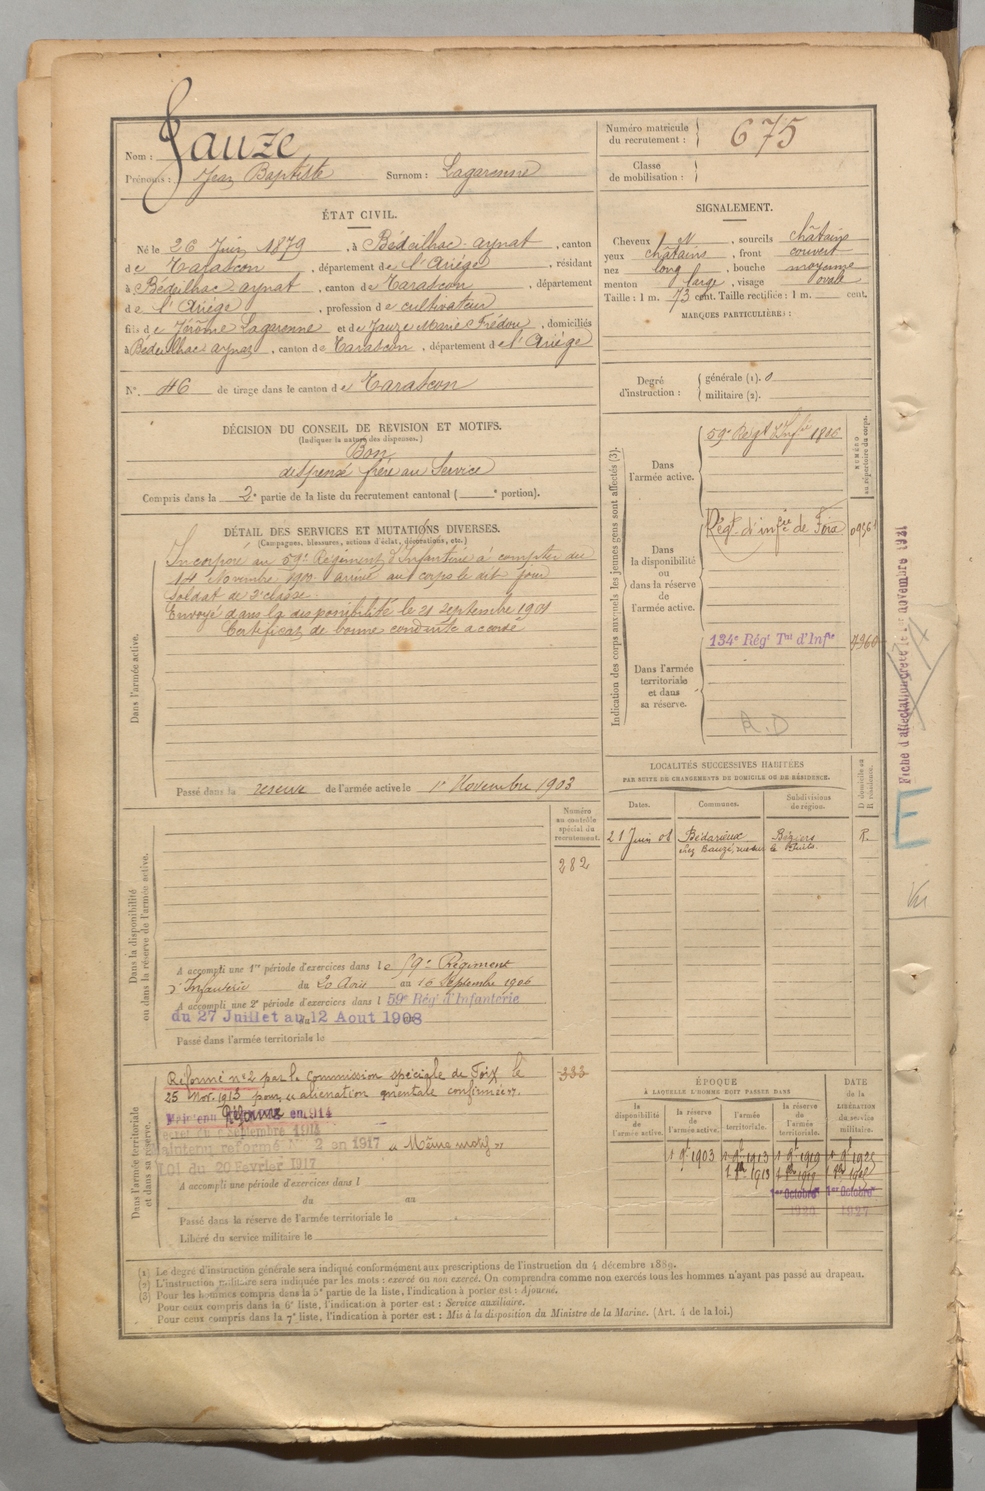 Nom : Jauze
Prénoms : Jean Baptiste Surnom : Lagarenne
Numéro matricule du recrutement : 675
Classe de mobilisation :
ÉTAT CIVIL.
Né le 26 Juin 1879, à Bédeilhac-aynat, canton
de Tarascon, département de l'Ariège, résidant
à Bédeilhac aynat, canton de Tarascon, département
de l'Ariège, profession de cultivateur
fils de Jérôme Lagarenne et de Jauze Marie Frédou, domiciliés
à Bédeilhac aynat, canton de Tarascon, département de l'Ariège
N° 46 de tirage dans le canton de Tarascon
SIGNALEMENT.
Cheveux, sourcils châtains
yeux châtains, front couvert
nez long, bouche moyenne
menton large, visage ovale
Taille : 1 m. 73 cent. Taille rectifiée : 1 m. cent.
MARQUES PARTICULIÈRES :
Degré d'instruction : générale (1). 0
militaire (2).
DÉCISION DU CONSEIL DE REVISION ET MOTIFS.
(Indiquer la nature des dispenses.)
Bon
dispensé frère au Service
Compris dans la 2e partie de la liste du recrutement cantonal ( e portion).
DÉTAIL DES SERVICES ET MUTATIONS DIVERSES.
(Campagnes, blessures, actions d'éclat, décorations, etc.)
Dans l'armée active.
Incorporé au 59e Régiment d'Infanterie à compter du
14 Novembre 1900 arrivé au corps le dit jour
Soldat de 2e classe
Envoyé dans la disponibilité le 21 Septembre 1901
Certificat de bonne conduite accordé
Passé dans la réserve de l'armée active le 1er Novembre 1903
Indication des corps auxquels les jeunes gens sont affectés (3).
NUMÉRO au répertoire du corps.
Dans l'armée active.
59e Régt d'Infie
Dans la disponibilité ou dans la réserve de l'armée active.
Régt. d'infie de Foix
Dans l'armée territoriale et dans sa réserve.
134e Régt Tal d'Infie
R.D
Fiche d'affectation créée le 1er novembre 1921
E
Vu
LOCALITÉS SUCCESSIVES HABITÉES
PAR SUITE DE CHANGEMENTS DE DOMICILE OU DE RÉSIDENCE.
Dates. Communes. Subdivisions de région. D domicile ou R résidence.
21 Juin 08 Bédarieux Béziers R.
Dans la disponibilité ou dans la réserve de l'armée active.
Numéro au contrôle spécial du recrutement.
282
A accompli une 1re période d'exercices dans le 59e Régiment
d'Infanterie du 20 Août au 16 Septembre 1906
A accompli une 2e période d'exercices dans l 59e Rég' d'Infanterie
du 27 Juillet au 12 Aout 1908
Passé dans l'armée territoriale le
Dans l'armée territoriale et dans sa réserve.
333
Réformé n° 2 par la Commission spéciale de Foix le
25 Nov. 1913 pour « aliénation mentale confirmée ».
Maintenu Réformé en 1914
Décret du 9 Septembre 1914
Maintenu réformé N° 2 en 1917 « Même motif »
LOI du 20 Février 1917
A accompli une période d'exercices dans l
du au
Passé dans la réserve de l'armée territoriale le
Libéré du service militaire le
ÉPOQUE
À LAQUELLE L'HOMME DOIT PASSER DANS
la disponibilité de l'armée active. la réserve de l'armée active. l'armée territoriale. la réserve de l'armée territoriale.
DATE de la LIBÉRATION du service militaire.
1 9e 1903 1 9e 1913 1 9e 1919 1 9e 1925
1er Octobre 1er Octobre
1927
(1) Le degré d'instruction générale sera indiqué conformément aux prescriptions de l'instruction du 4 décembre 1889.
(2) L'instruction militaire sera indiquée par les mots : exercé ou non exercé. On comprendra comme non exercés tous les hommes n'ayant pas passé au drapeau.
(3) Pour les hommes compris dans la 5e partie de la liste, l'indication à porter est : Ajourné.
Pour ceux compris dans la 6e liste, l'indication à porter est : Service auxiliaire.
Pour ceux compris dans la 7e liste, l'indication à porter est : Mis à la disposition du Ministre de la Marine. (Art. 4 de la loi.)